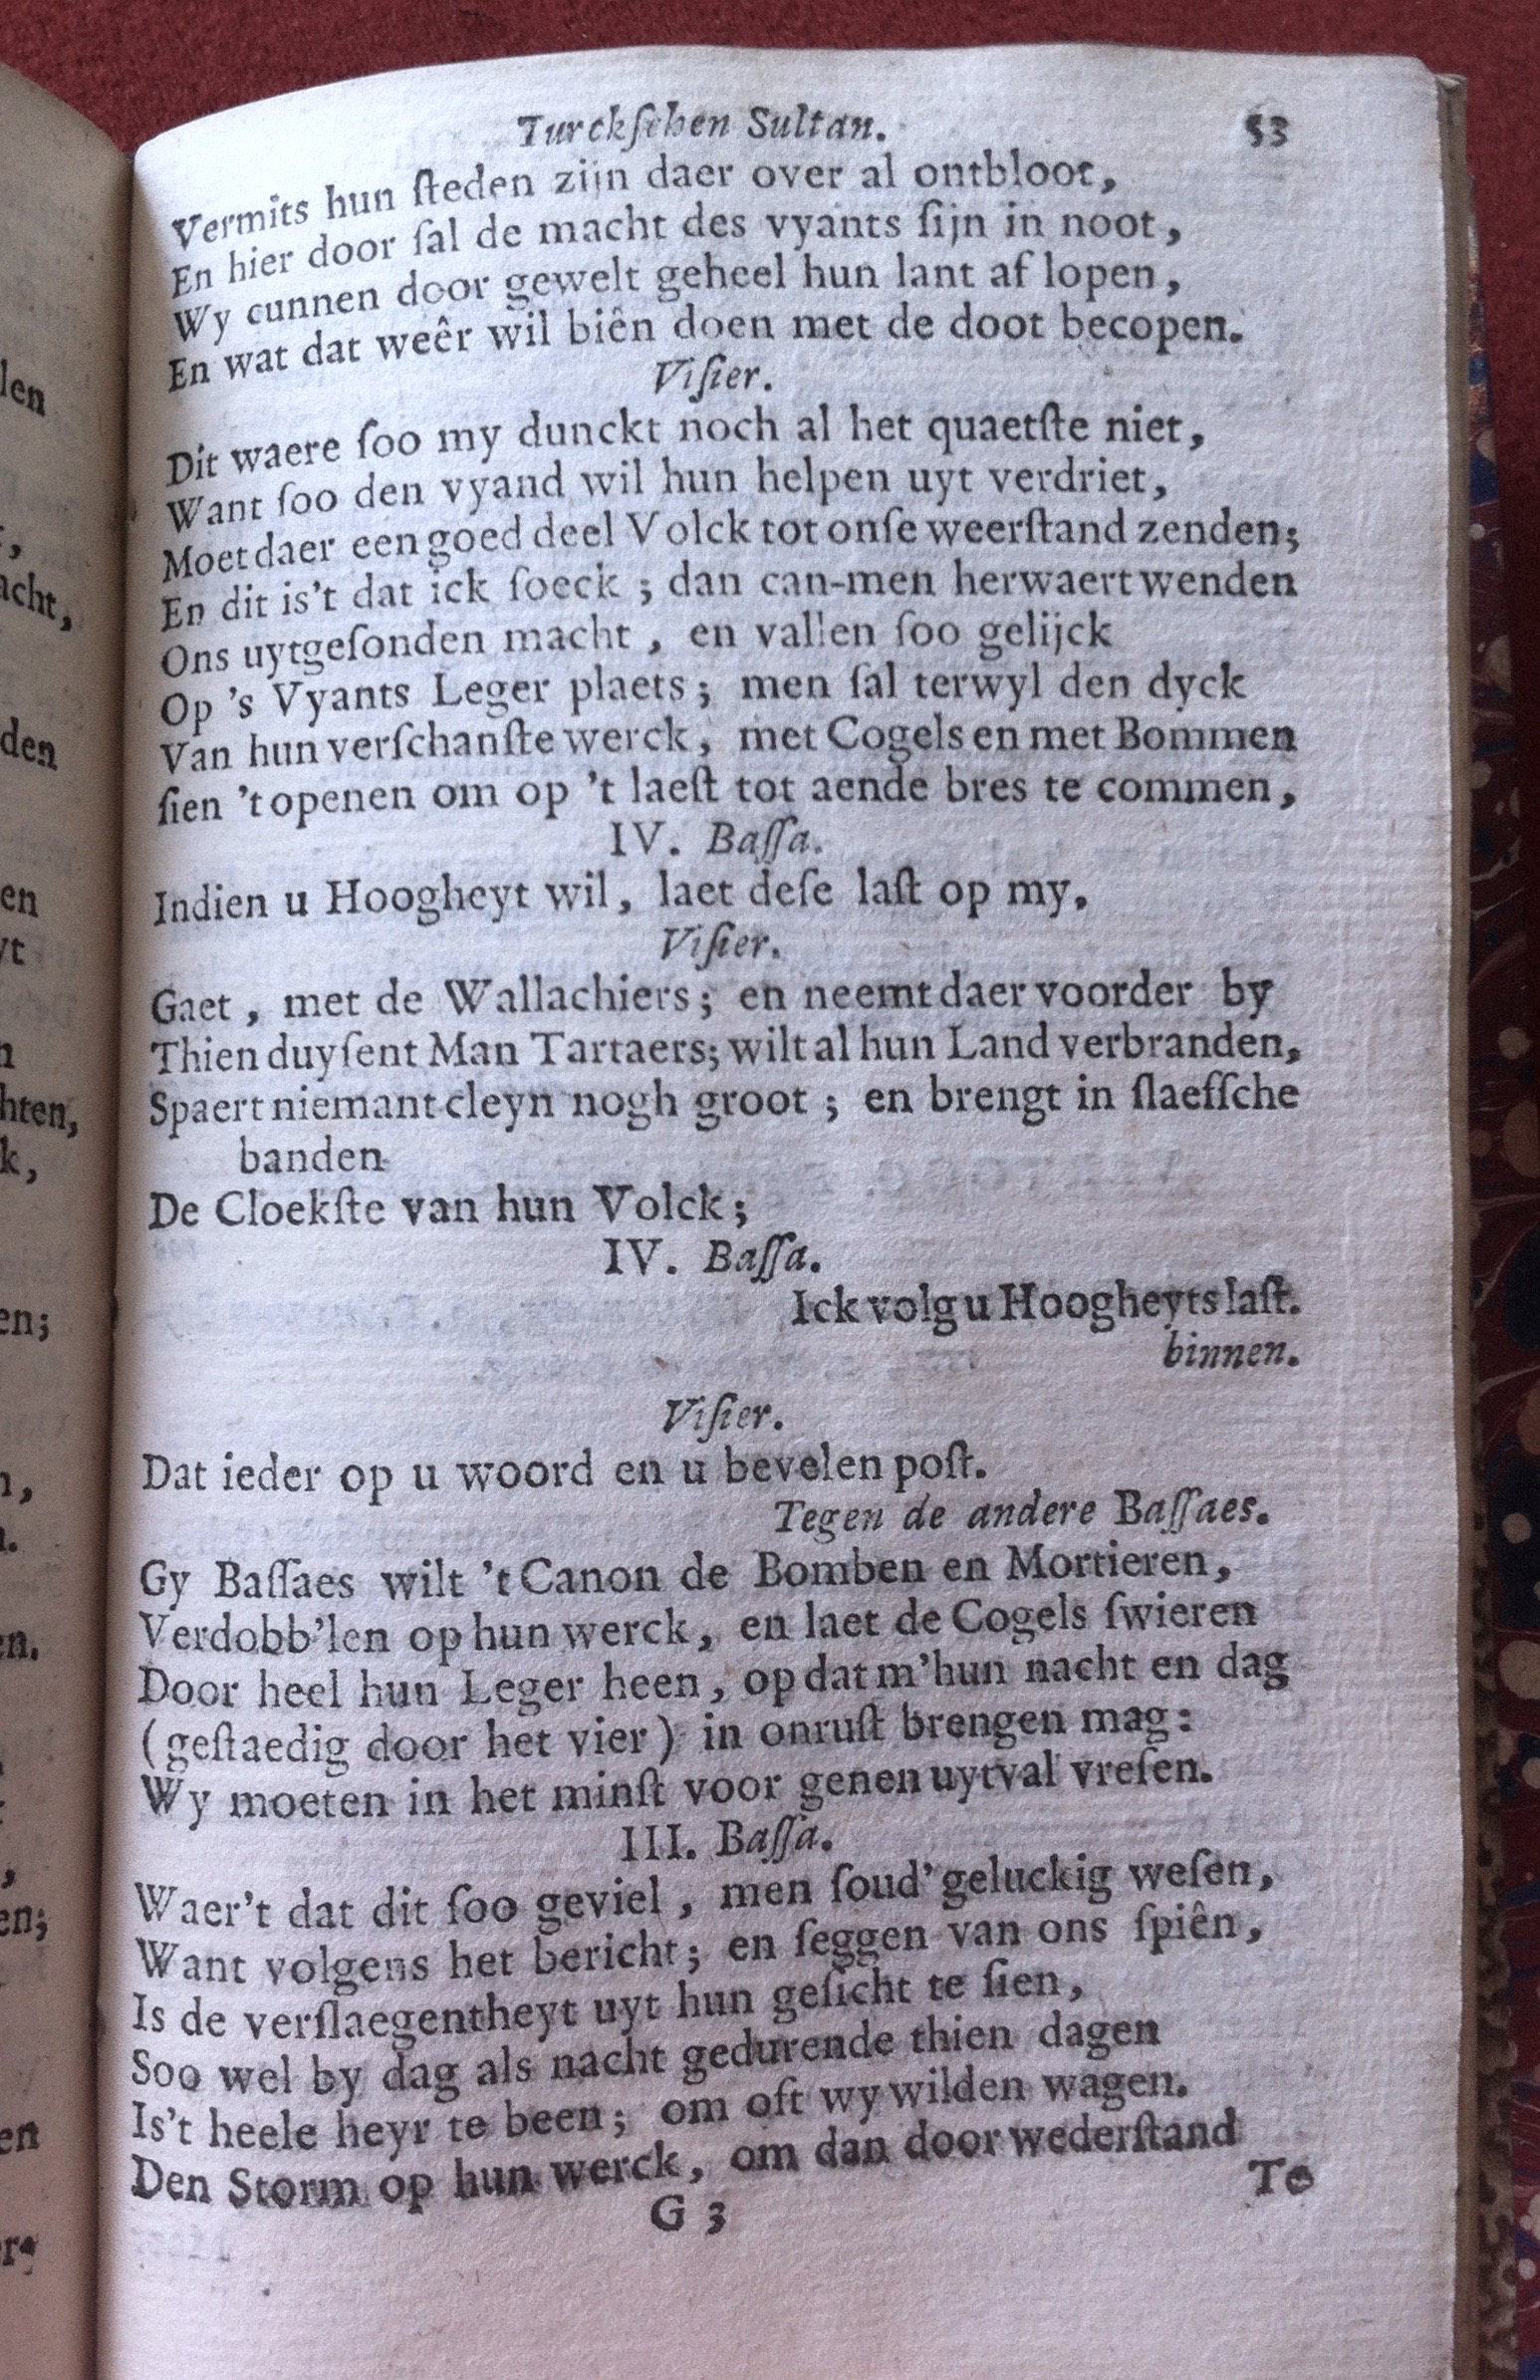 Turckſchen Sultan. 53
Vermits hun ſteden zijn daer over al ontbloot,
En hier door ſal de macht des vyants ſijn in noot,
Wy cunnen door gewelt geheel hun lant af lopen,
En wat dat weêr wil biên doen met de doot becopen.
Viſier.
Dit waere ſoo my dunckt noch al het quaetſte niet,
Want ſoo den vyand wil hun helpen uyt verdriet,
Moet daer een goed deel Volck tot onſe weerſtand zenden;
En dit is't dat ick ſoeck ; dan can-men herwaert wenden
Ons uytgeſonden macht , en vallen ſoo gelijck
Op 's Vyants Leger plaets ; men ſal terwyl den dyck
Van hun verſchanſte werck, met Cogels en met Bommen
ſien 't openen om op 't laeſt tot aende bres te commen,
IV. Baſſa.
Indien u Hoogheyt wil, laet deſe laſt op my,
Viſier.
Gaet , met de Wallachiers ; en neemt daer voorder by
Thien duyſent Man Tartaers; wilt al hun Land verbranden,
Spaert niemant cleyn nogh groot ; en brengt in ſlaefſche
banden
De Cloekſte van hun Volck ;
IV. Baſſa.
Ick volg u Hoogheyts laſt.
binnen.
Viſier.
Dat ieder op u woord en u bevelen poſt.
Tegen de andere Baſſaes.
Gy Baſſaes wilt 't Canon de Bomben en Mortieren,
Verdobb'len op hun werck, en laet de Cogels ſwieren
Door heel hun Leger heen, op dat m'hun nacht en dag
(geſtaedig door het vier) in onruſt brengen mag:
Wy moeten in het minſt voor genen uytval vreſen.
III. Baſſa.
Waer't dat dit ſoo geviel , men ſoud' geluckig weſen,
Want volgens het bericht ; en ſeggen van ons ſpiên,
Is de verſlaegentheyt uyt hun geſicht te ſien,
Soo wel by dag als nacht gedurende thien dagen
Is't heele heyr te been ; om oft wy wilden wagen.
Den Storm op hun werck, om dan door wederſtand
G 3 To
len
,
acht,
den
en
yt
n
hten,
k,
en;
n,
.
en.
,
en;
en